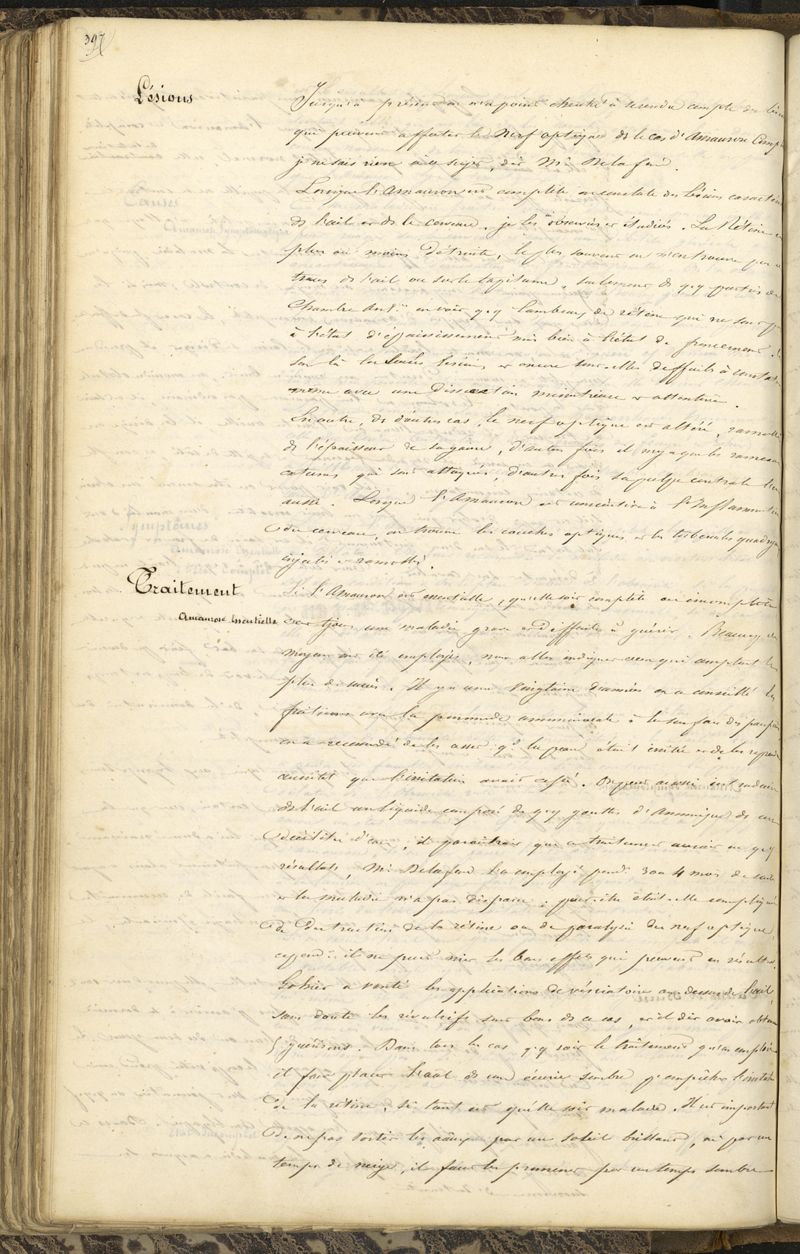 397
Lésions
Jusqu'à présent on n'a point cherché à rendre compte des
qui peuvent affecter le Nerf optique ds le cas d'amaurose
je ne sais rien à ce sujet, dit Mr Delafond.
Lorsque l'amaurose est complète on constate des lésions
de l'œil et de le cerveau, je les ai observées et étudiées. La Rétine
plus ou moins détruite, le plus souvent on n'en trouve pas
traces ds l'œil ou sur le tapis, seulement ds qq parties de
Chambre antre on voit qq lambeaux de rétine qui ne sont
à l'état d'épaississement mais bien à l'état de froncement.
sont là les seules lésions, et encore sont elles difficiles à
même avec une dissection minutieuse et attentive.
En outre, ds d'autres cas, le nerf optique est altéré, ramolli
ds l'épaisseur de sa gaine, d'autres fois il n'y a que les rameaux
qui sont attaqués, d'autres fois sa pulpe centrale
aussi. Lorsque l'Amaurose est consécutive à l'Inflammation
du cerveau, on trouve les couches optiques et les tubercules
injectés et ramollis.
Traitement
Amaurose Essentielle
Si l'Amaurose est essentielle, qu'elle soit complète ou incomplète
c'est tjours une maladie grave et difficile à guérir. Beaucoup de
moyens ont été employés, nous allons indiquer ceux qui comptent le
plus de succès. Il y a une vingtaine d'années on a conseillé les
frictions avec la pommade ammoniacale à la surface des
on a recommandé de les cesser qd la peau était irritée et de les
aussitôt que l'irritation avait cessé. On peut aussi introduire
ds l'œil un liquide composé de qq gouttes d'Ammoniaque ds un
décilitre d'eau, il paraitrait que ce traitement aurait eu qq
résultats, Mr Delafond l'a employé pendt 3 ou 4 mois de suite
et la maladie n'a pas disparu, peut-être était-elle compliquée
de Destruction de la rétine ou de paralysie du nerf optique,
cependt il ne peut nier les bons effets qui peuvent en résulter.
Gohier a vanté les applications de vésicatoire au dessus de l'œil,
sans doute les révulsifs sont bons ds ce cas, et il dit avoir obtenu
5 guérisons. Dans tous les cas qq soit le traitement qu'on emploie
il faut placer l'anl ds une écurie sombre pr empêcher
de la rétine, si tant est qu'elle soit malade. Il est important
de ne pas sortir les animx par un soleil brillant, ni par un
temps de neige, il faut les promener par un temps sombre